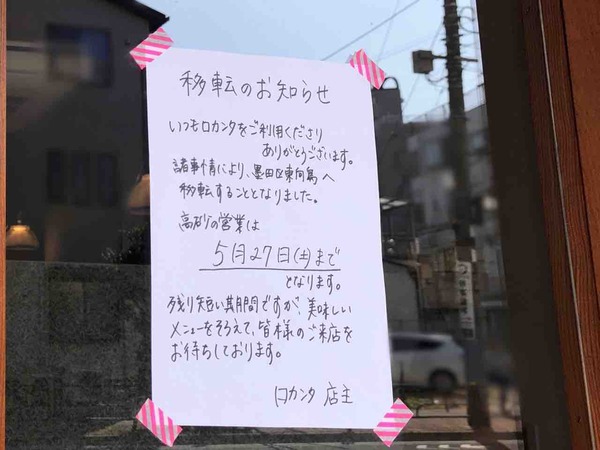 移転のお知らせ
いつもロカンタをご利用くださり
ありがとうございます。
諸事情により、墨田区東向島へ
移転することとなりました。
高砂の営業は
5月27日(土)まで
となります。
残り短い期間ですが、美味しい
メニューをそろえて、皆様のご来店を
お待ちしております。
ロカンタ 店主